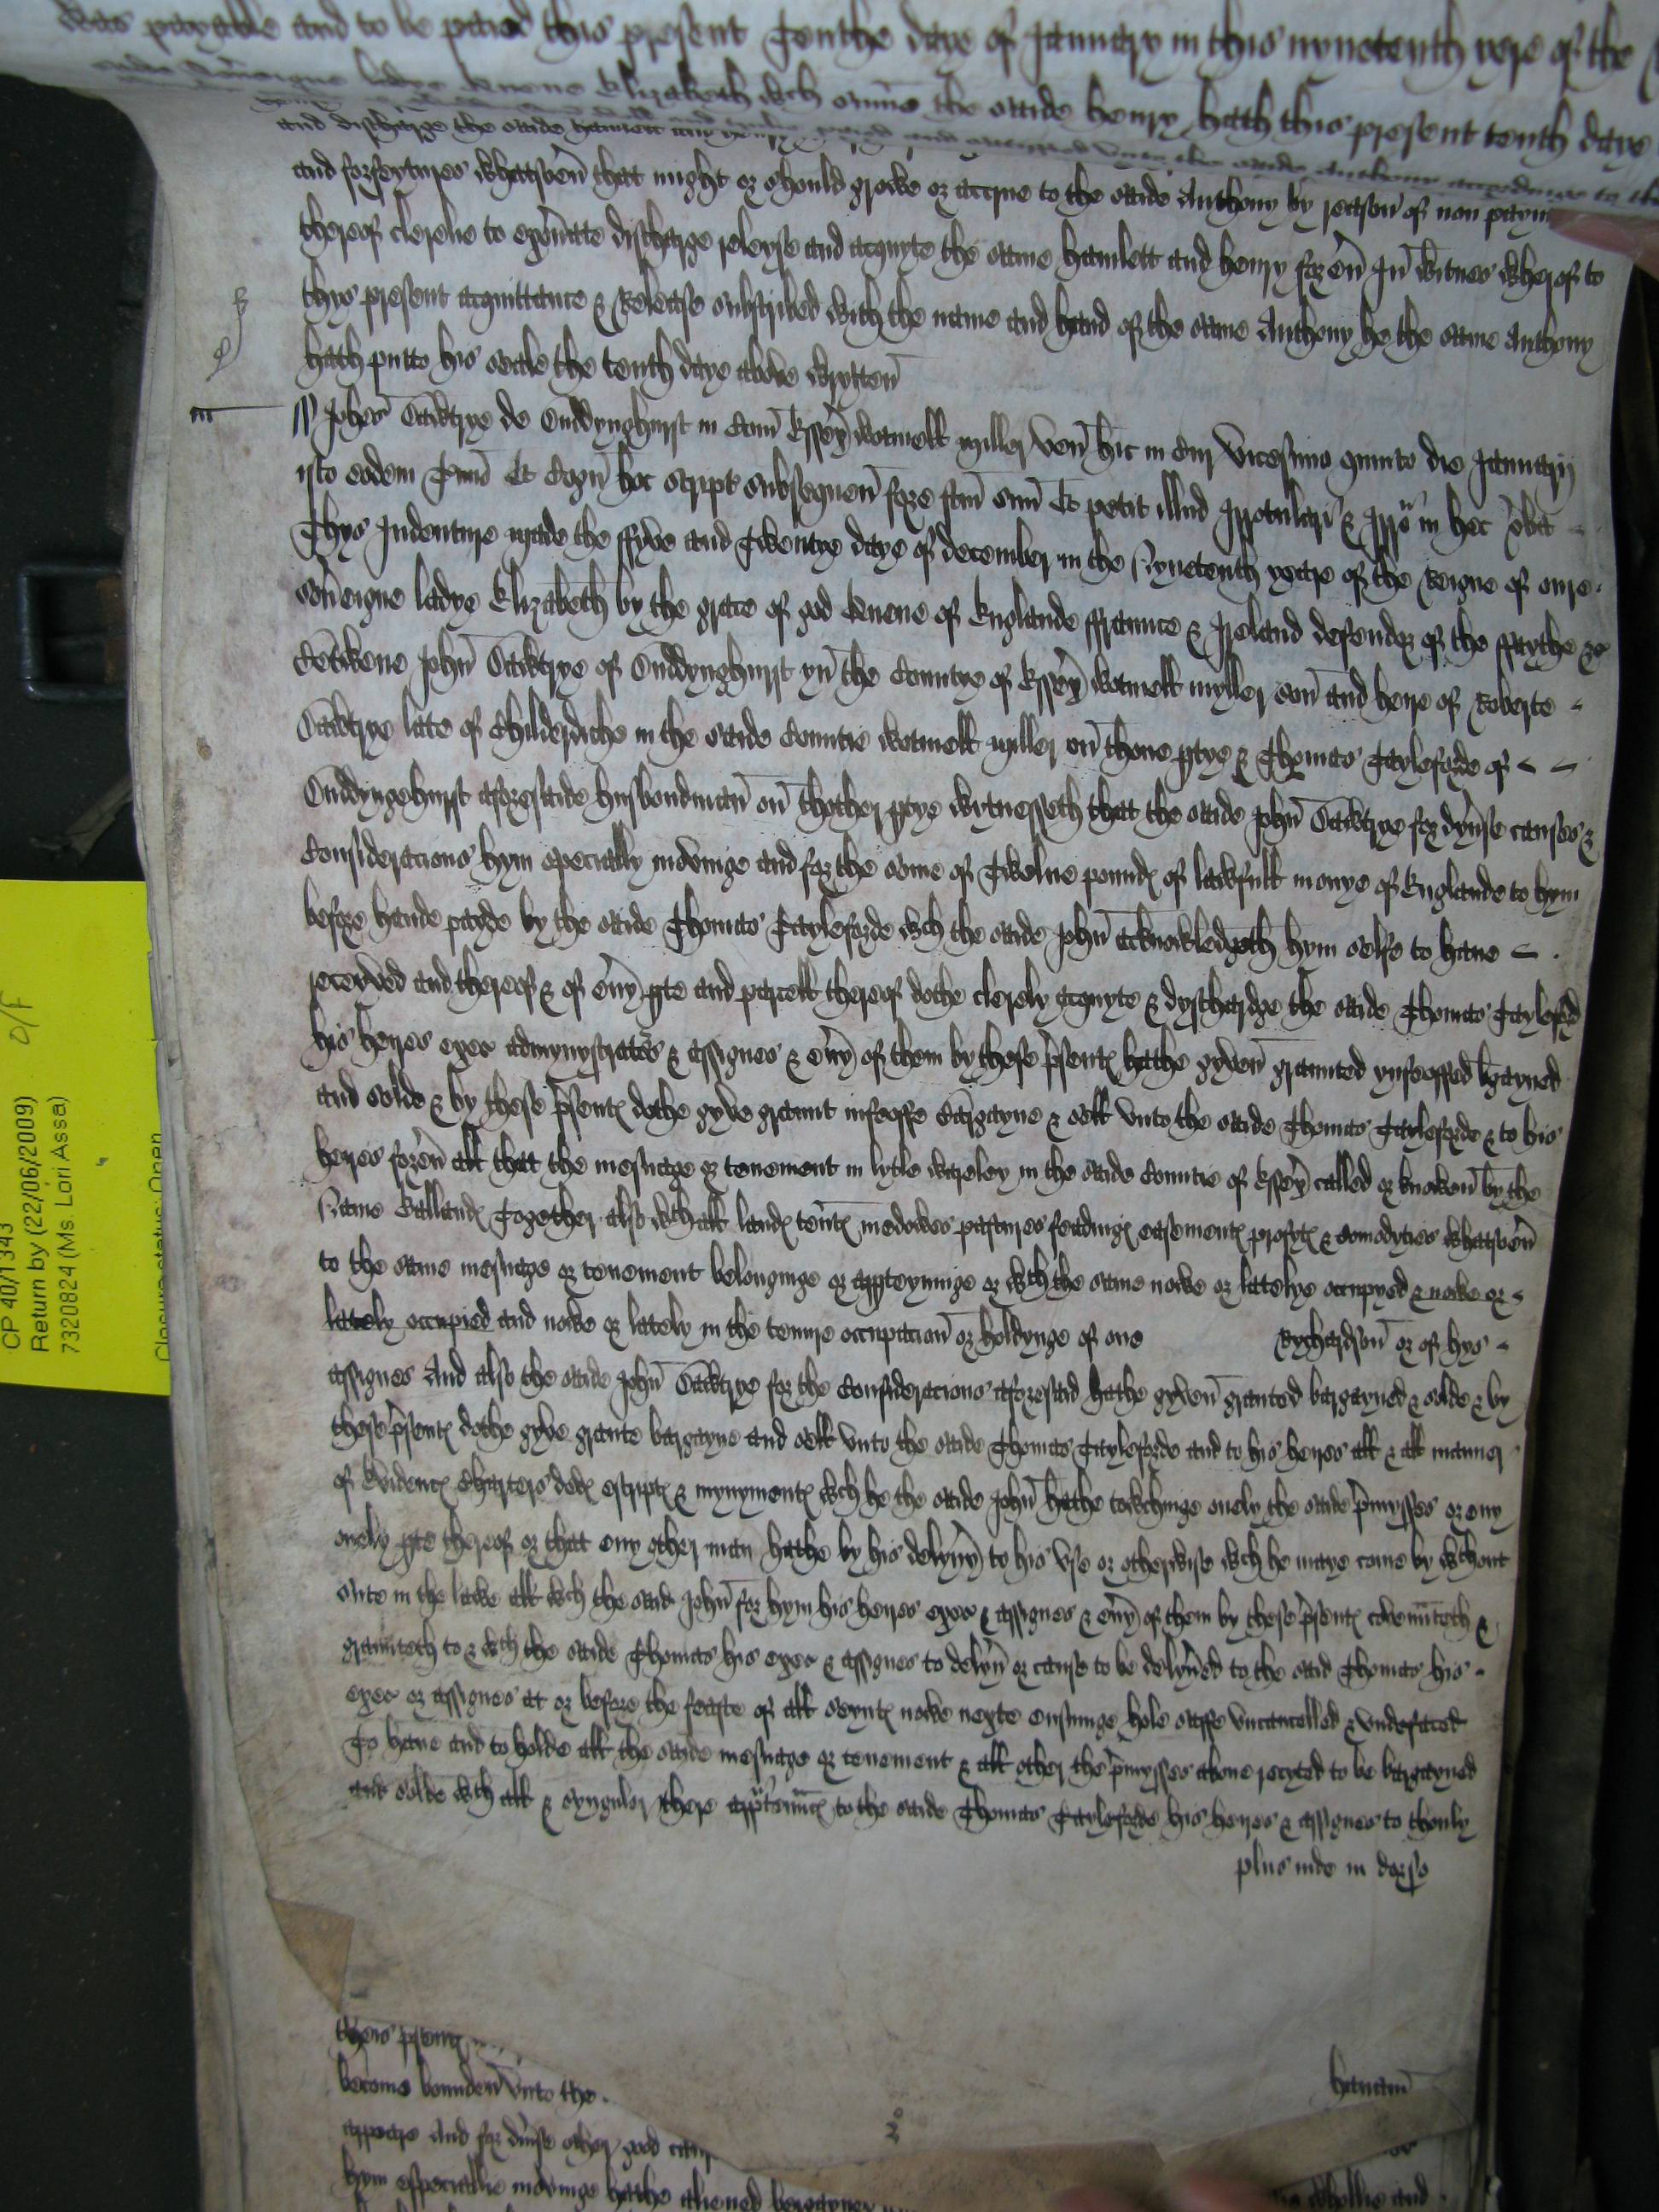 was payable and to be paied this present Tenthe daye of January in this nynetenth yere of the
Ladye Quene Elizabeth wch some the saide Henry hath this present tenth daye
and discharge the saide Hamlett and Henry
and forfeytures whatsoeu̅ that might or should growe or accrue to the saide Anthony by reason of non paym
thereof clerelie to exon̅ate discharge releyse and acquyte the same Hamlett and Henry foreu̅ In witnes wherof to
thys present acquittance & Release subscribed with the name and hand of the same Anthony he the same Anthony
hath putto his seale the tenth daye above wrytten
m
Joh̅es Sawtrye de Onddynghurst in Com̅ Essex̅ watmell miller ven̅ hic in Cur̅ vicesimo quinto die Januarij
isto eodem T̅mi̅o Et Cogn̅ hoc script̅ subsequen̅ fore fc̅m̅ suu̅ Et petit illud Irrotulari & Irro̅ in hec v̅ba
Thys Indenture made the ffyve and Twentye daye of december in the Nynetenth yeare of the Reigne of oure
sou̅eigne ladye Elizabeth by the grace of god Quene of Englande ffraunce & Ireland defender of the ffaythe &c
Betwene John̅ Sawtrye of Onddynghurst yn̅ the Countye of Essex̅ watmell myller son̅ and heire of Roberte
Sawtrye late of Childerdiche in the saide Countie watmell miller on̅ thone p̅tye & Thomas Tayleforde of
Onddyngehurst aforesaide husbondman̅ on̅ thother p̅tye wytnesseth that the saide John̅ Sawtrye for dyu̅se causes &
Consideracions hym specially movinge and for the some of Twelue pound℮ of lawfull monye of Englande to hym
before hande payde by the saide Thomas Tayleforde wch the saide John̅ acknowledgeth hym selfe to haue
receyved and thereof & of eu̅y p̅te and parcell thereof dothe clerely acquyte & dyschardge the saide Thomas Tayleford
his heyres exec̅ admynystrato̅s & assignes & eu̅y of them by these p̅sent℮ hathe gyven̅ graunted ynfeoffed b̅gayned
and solde & by these p̅sent℮ dothe gyve graunt infeoffe Bargayne & sell vnto the saide Thomas Tayleforde & to his
heyres foreu̅ all that the mesuage or tenement in lytle wareley in the saide Countie of Essex̅ called or knowen̅ by the
Name Balland℮ Together also wth all land℮ ten̅t℮ medowes pastures feading℮ easement℮ profyt℮ & Comodyties whatsoeu̅
to the same mesuage or tenement belonginge or app̅teyninge or wth the same nowe or latelye occupyed & nowe or
lately occupied and nowe or lately in the tenure occupacion̅ or holdynge of one Rychardson̅ or of hys
assignes And also the saide John̅ Sawtrye for the Consideracions aforesaid hathe gyven̅ granted bargayned & solde & by
these p̅sent℮ dothe gyve grante bargayne and sell vnto the saide Thomas Tayleforde and to his heyres all & all manner
of Evidenc℮ Charters ded℮ escript℮ & mynyment℮ wch he the saide John̅ hathe towchinge onely the saide p̅mysses or eny
onely p̅te thereof or that eny other man hathe by his delyu̅y to his vse or otherwise wch he maye come by wthout
sute in the lawe all wch the said John̅ for hym his heyres exec̅ & assignes & eu̅y of them by these p̅sent℮ covenauteth &
graunteth to & wth the saide Thomas his exec̅ & assignes to delyu̅ or cause to be delyu̅ed to the said Thomas his
exec̅ or assignes at or before the feaste of all seynt℮ nowe nexte ensuinge hole saffe vncancelled & vndefaced
To haue and to holde all the saide mesuage or tenement & all other the p̅mysses aboue recyted to be bargayned
and solde wth all & synguler there app̅ten̅nc℮ to the saide Thomas Tayleforde his heyres & assignes to thonly
plus inde in dorso
theis p̅sent℮
become bounden̅ vnto the
Hanam
2
appeare And for diu̅se other good
hym especiallie movinge hathe aliened bargayned
whollie and
CP 40/1343
O/F
Return by (22/06/2009)
7320824 (Ms. Lori Assa)
Closure status: Open